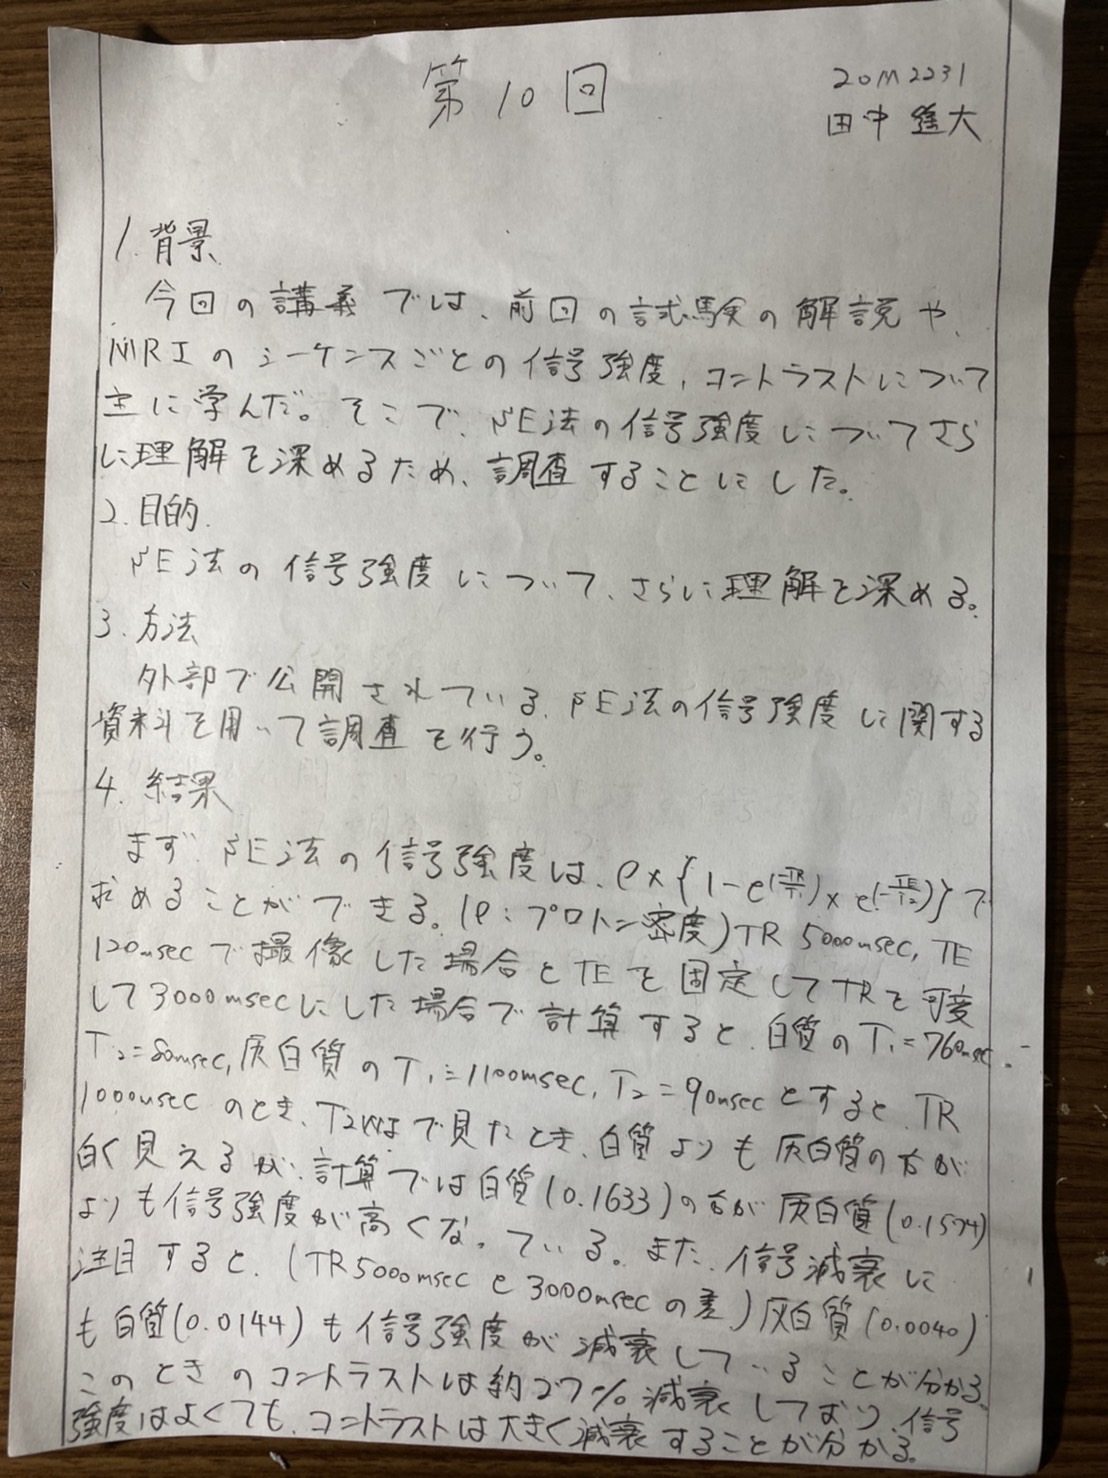 第10回
20M2231
田中 進大
1. 背景
今回の講義では、前回の試験の解説や、
MRIのシーケンスごとの信号強度、コントラストについて
主に学んだ。そこで、SE法の信号強度についてさら
に理解を深めるため、調査することにした。
2. 目的
SE法の信号強度について、さらに理解を深める。
3. 方法
外部で公開されている、SE法の信号強度に関する
資料を用いて調査を行う。
4. 結果
まず、SE法の信号強度は、ρ×{1-e(-TR/T1)×e(-TE/T2)}で
求めることができる。(ρ:プロトン密度)TR 5000msec, TE
120msecで撮像した場合とTEを固定してTRを可変
して3000msecにした場合で計算すると、白質のT1=760msec、
T2=80msec, 灰白質のT1=1100msec, T2=90msecとすると、TR
1000msecのとき、T2Wで見たとき、白質よりも灰白質の方が
白く見えるが、計算では白質(0.1633)の方が灰白質(0.1574)
よりも信号強度が高くなっている。また、信号減衰に
注目すると、(TR5000msecと3000msecの差)灰白質(0.0040)
も白質(0.0144)も信号強度が減衰していることが分かる。
このときのコントラストは約27%減衰しており、信号
強度はよくても、コントラストは大きく減衰することが分かる。